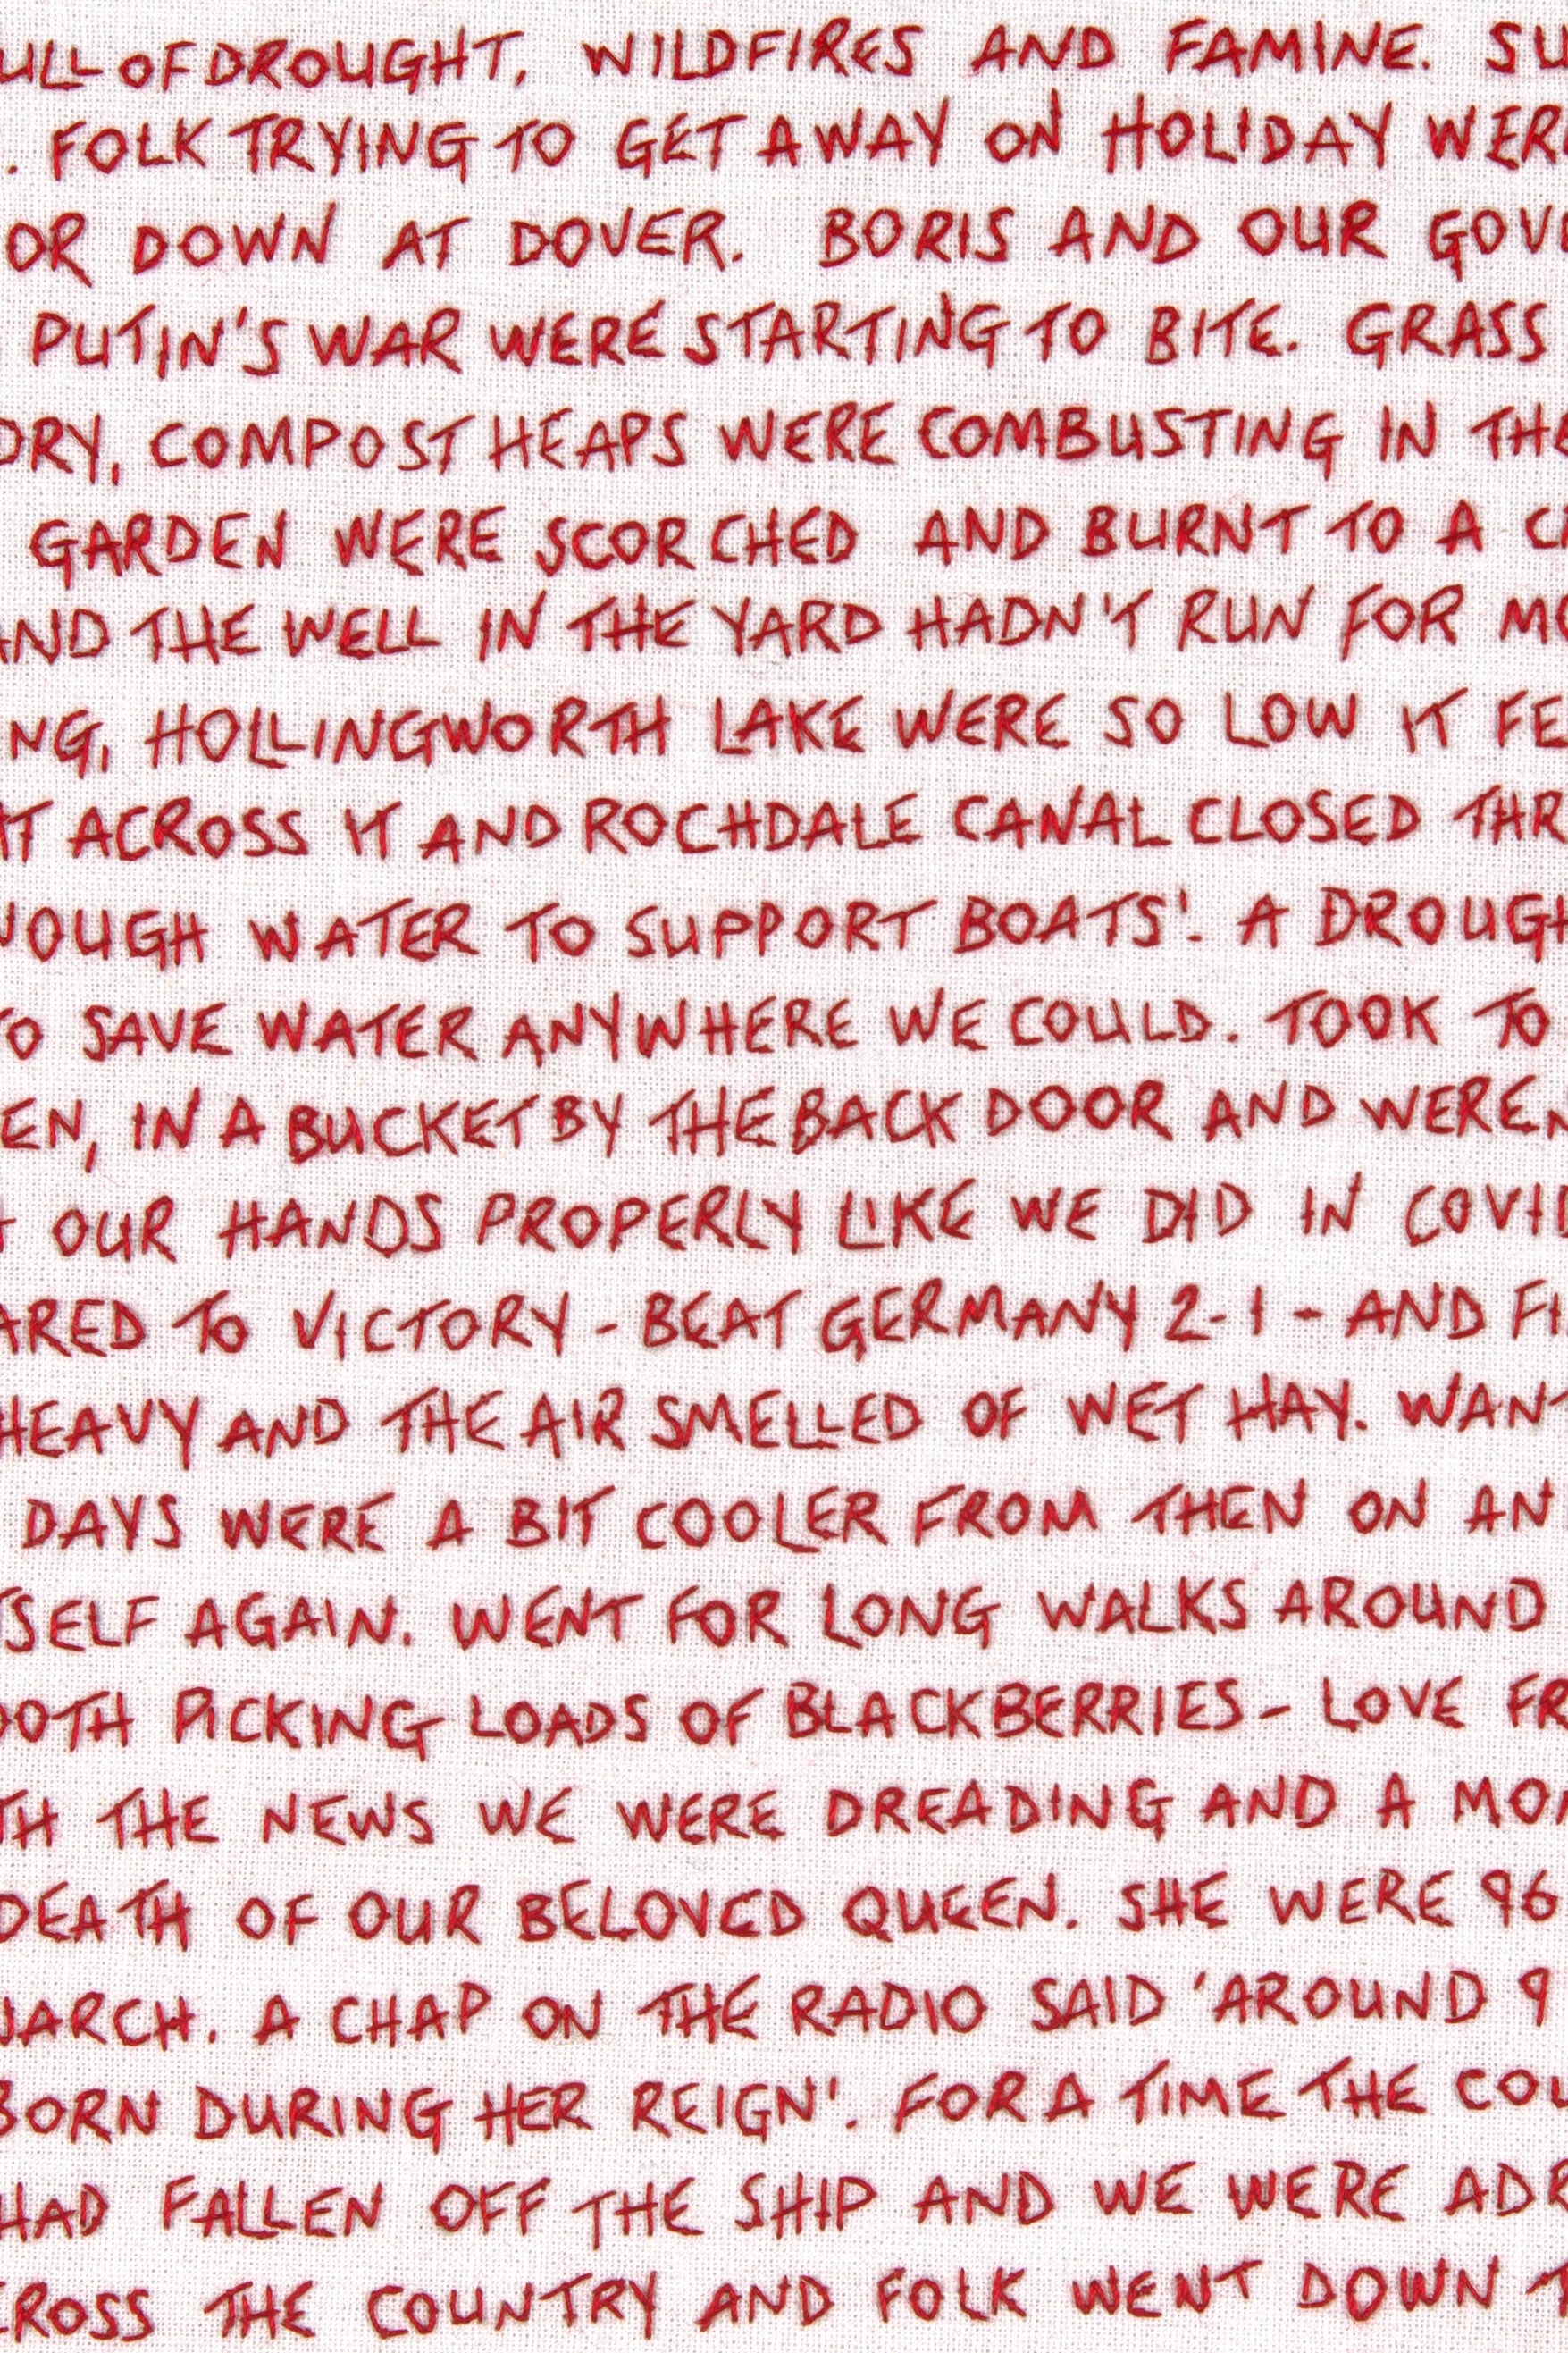 ULL OF DROUGHT, WILDFIRES AND FAMINE. SU
. FOLK TRYING TO GET AWAY ON HOLIDAY WER
OR DOWN AT DOVER. BORIS AND OUR GOV
PUTIN'S WAR WERE STARTING TO BITE. GRASS
DRY, COMPOST HEAPS WERE COMBUSTING IN THE
GARDEN WERE SCORCHED AND BURNT TO A C
AND THE WELL IN THE YARD HADN'T RUN FOR M
NG, HOLLINGWORTH LAKE WERE SO LOW IT FE
AT ACROSS IT AND ROCHDALE CANAL CLOSED THR
NOUGH WATER TO SUPPORT BOATS'. A DROUGH
TO SAVE WATER ANYWHERE WE COULD. TOOK TO
EN, IN A BUCKET BY THE BACK DOOR AND WEREN
H OUR HANDS PROPERLY LIKE WE DID IN COVI
ARED TO VICTORY - BEAT GERMANY 2-1 - AND FI
HEAVY AND THE AIR SMELLED OF WET HAY. WANT
DAYS WERE A BIT COOLER FROM THEN ON AN
TSELF AGAIN. WENT FOR LONG WALKS AROUND
OOTH PICKING LOADS OF BLACKBERRIES - LOVE FR
TH THE NEWS WE WERE DREADING AND A MO
DEATH OF OUR BELOVED QUEEN. SHE WERE 96
NARCH. A CHAP ON THE RADIO SAID 'AROUND 9
BORN DURING HER REIGN'. FOR A TIME THE COU
HAD FALLEN OFF THE SHIP AND WE WERE ADR
CROSS THE COUNTRY AND FOLK WENT DOWN T